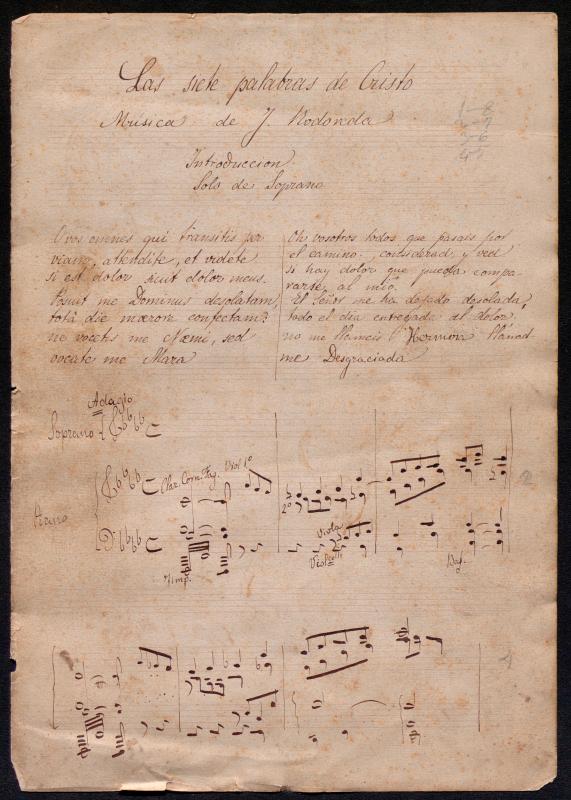 Las siete palabras de Cristo
Música de J. Rodoreda
Introduccion
Solo de Soprano
1 8
2 7
3 6
4 5
O vos omnes qui transitis per
viam, attendite, et videte
si est dolor sicut dolor meus.
Posuit me Dominus desolatam,
totâ die mærore confectam:
ne vocetis me Næmi, sed
vocate me Mara
Oh vosotros todos que pasais por
el camino, considerad y ved
si hay dolor que pueda compa-
rarse al mio.
El Señor me ha dejado desolada,
todo el dia entregada al dolor.
no me llameis Hermosa llamad-
me Desgraciada
Adagio
Soprano
Clar. Corn. Fag. Viol 1º
2º
Viola
Violcelli
Timp.